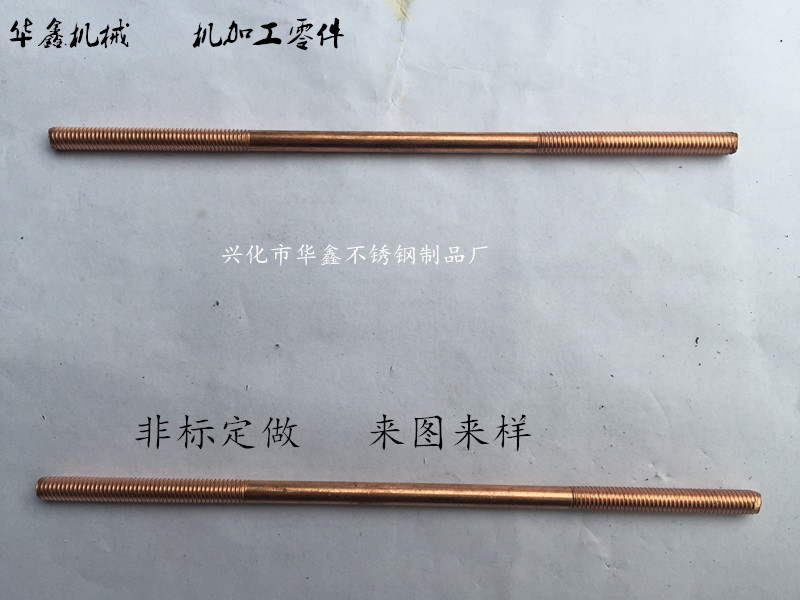 华鑫机械 机加工零件
兴化市华鑫不锈钢制品厂
非标定做 来图来样